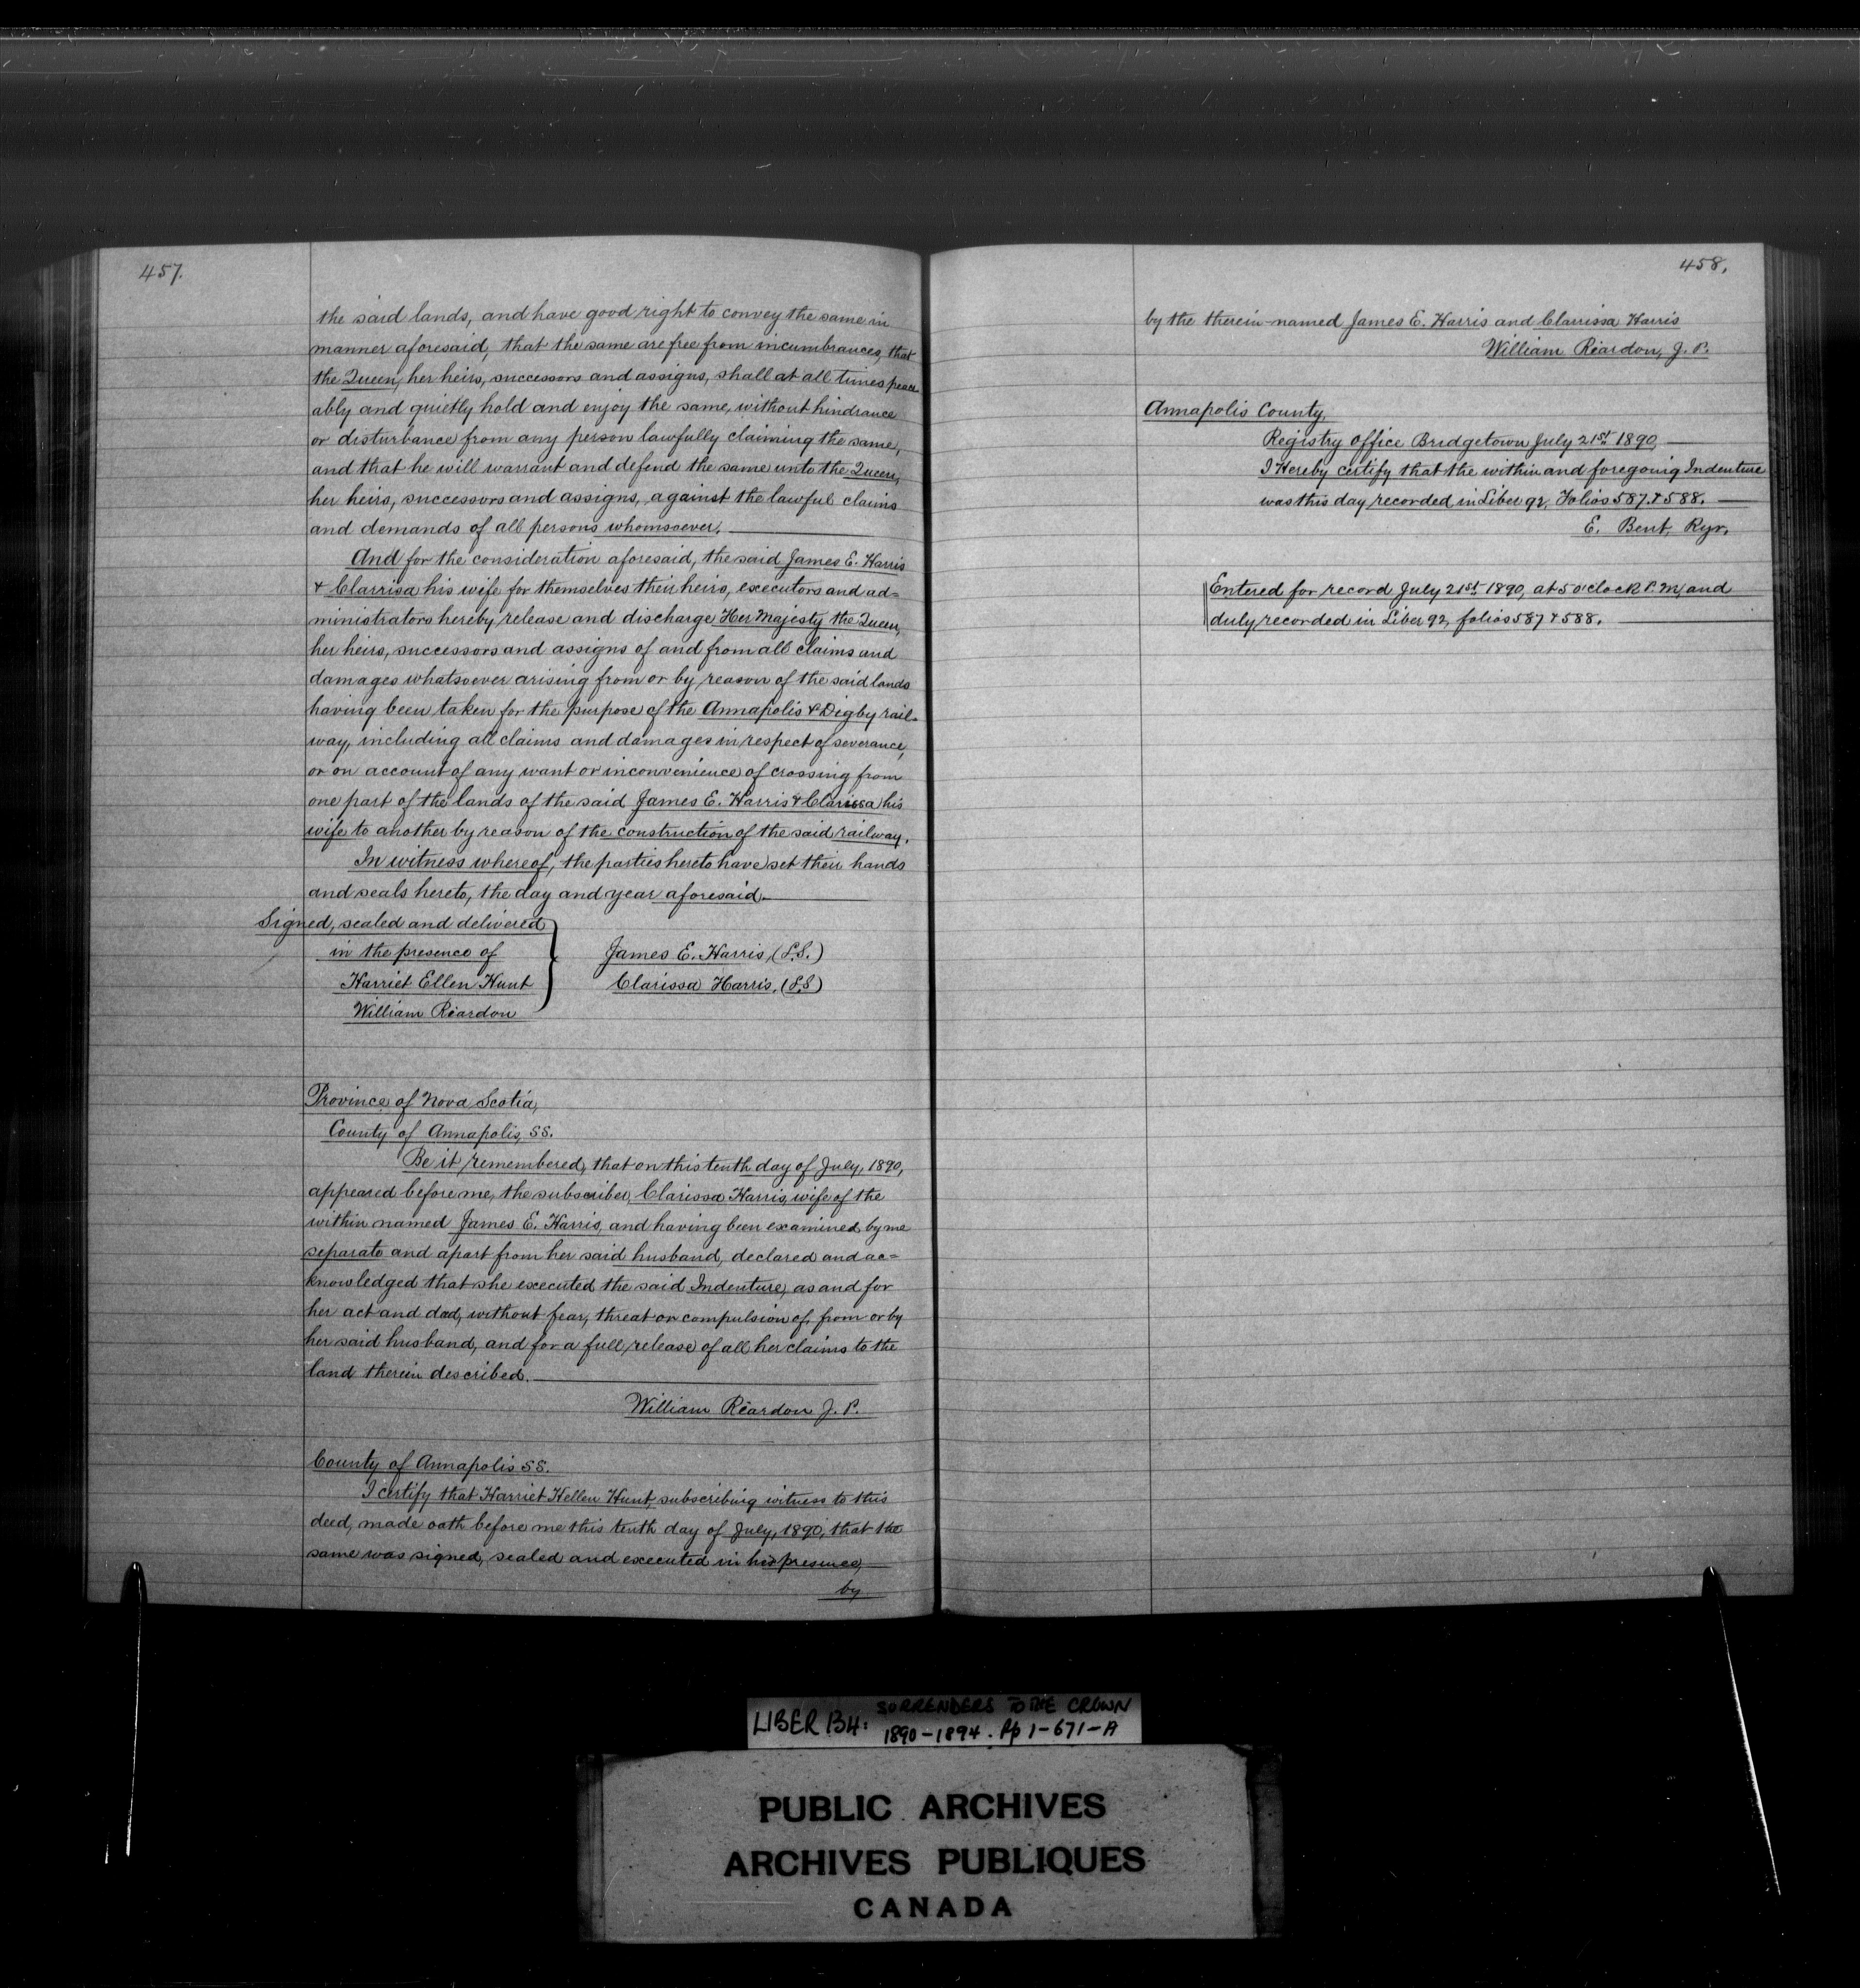 457.
the said lands, and have good right to convey the same in
manner aforesaid, that the same are free from incumbrances, that
the Queen, her heirs, successors and assigns, shall at all times peace-
ably and quietly hold and enjoy the same, without hindrance
or disturbance from any person lawfully claiming the same,
and that he will warrant and defend the same unto the Queen,
her heirs, successors and assigns, against the lawful claims
and demands of all persons whomsoever.
And for the consideration aforesaid, the said James E. Harris
& Clarrisa his wife for themselves their heirs, executors and ad=
ministrators hereby release and discharge Her Majesty the Queen,
her heirs, successors and assigns of and from all claims and
damages whatsoever arising from or by reason of the said lands
having been taken for the purpose of the Annapolis & Digby rail-
way, including all claims and damages in respect of severance,
or on account of any want or inconvenience of crossing from
one part of the lands of the said James E. Harris & Clarissa his
wife to another by reason of the construction of the said railway.
In witness whereof, the parties hereto have set their hands
and seals hereto, the day and year aforesaid.
Signed, sealed and delivered
in the presence of
Harriet Ellen Hunt
William Reardon
James E. Harris, (L.S.)
Clarissa Harris, (L.S)
Province of Nova Scotia,
County of Annapolis, SS.
Be it remembered, that on this tenth day of July, 1890,
appeared before me, the subscriber, Clarissa Harris, wife of the
within named James E. Harris, and having been examined by me
separate and apart from her said husband, declared and ac=
knowledged that she executed the said Indenture, as and for
her act and deed, without fear, threat or compulsion of, from or by
her said husband, and for a full release of all her claims to the
land therein described.
William Reardon J. P.
County of Annapolis SS.
I certify that Harriet Hellen Hunt, subscribing witness to this
deed, made oath before me this tenth day of July, 1890, that the
same was signed, sealed and executed in his presence,
by
458.
by the therein named James E. Harris and Clarrissa Harris
William Reardon, J. P.
Annapolis County,
Registry office Bridgetown July 21st 1890,
I Hereby certify that the within and foregoing Indenture
was this day recorded in Liber 92, Folios 587 & 588.
E. Bent, Rgr.
Entered for record July 21st 1890, at 5 o'clock P. M, and
duly recorded in Liber 92, folios 587 & 588.
LIBER 134: SURRENDERS TO THE CROWN
1890-1894. Pp 1-671-A
PUBLIC ARCHIVES
ARCHIVES PUBLIQUES
CANADA